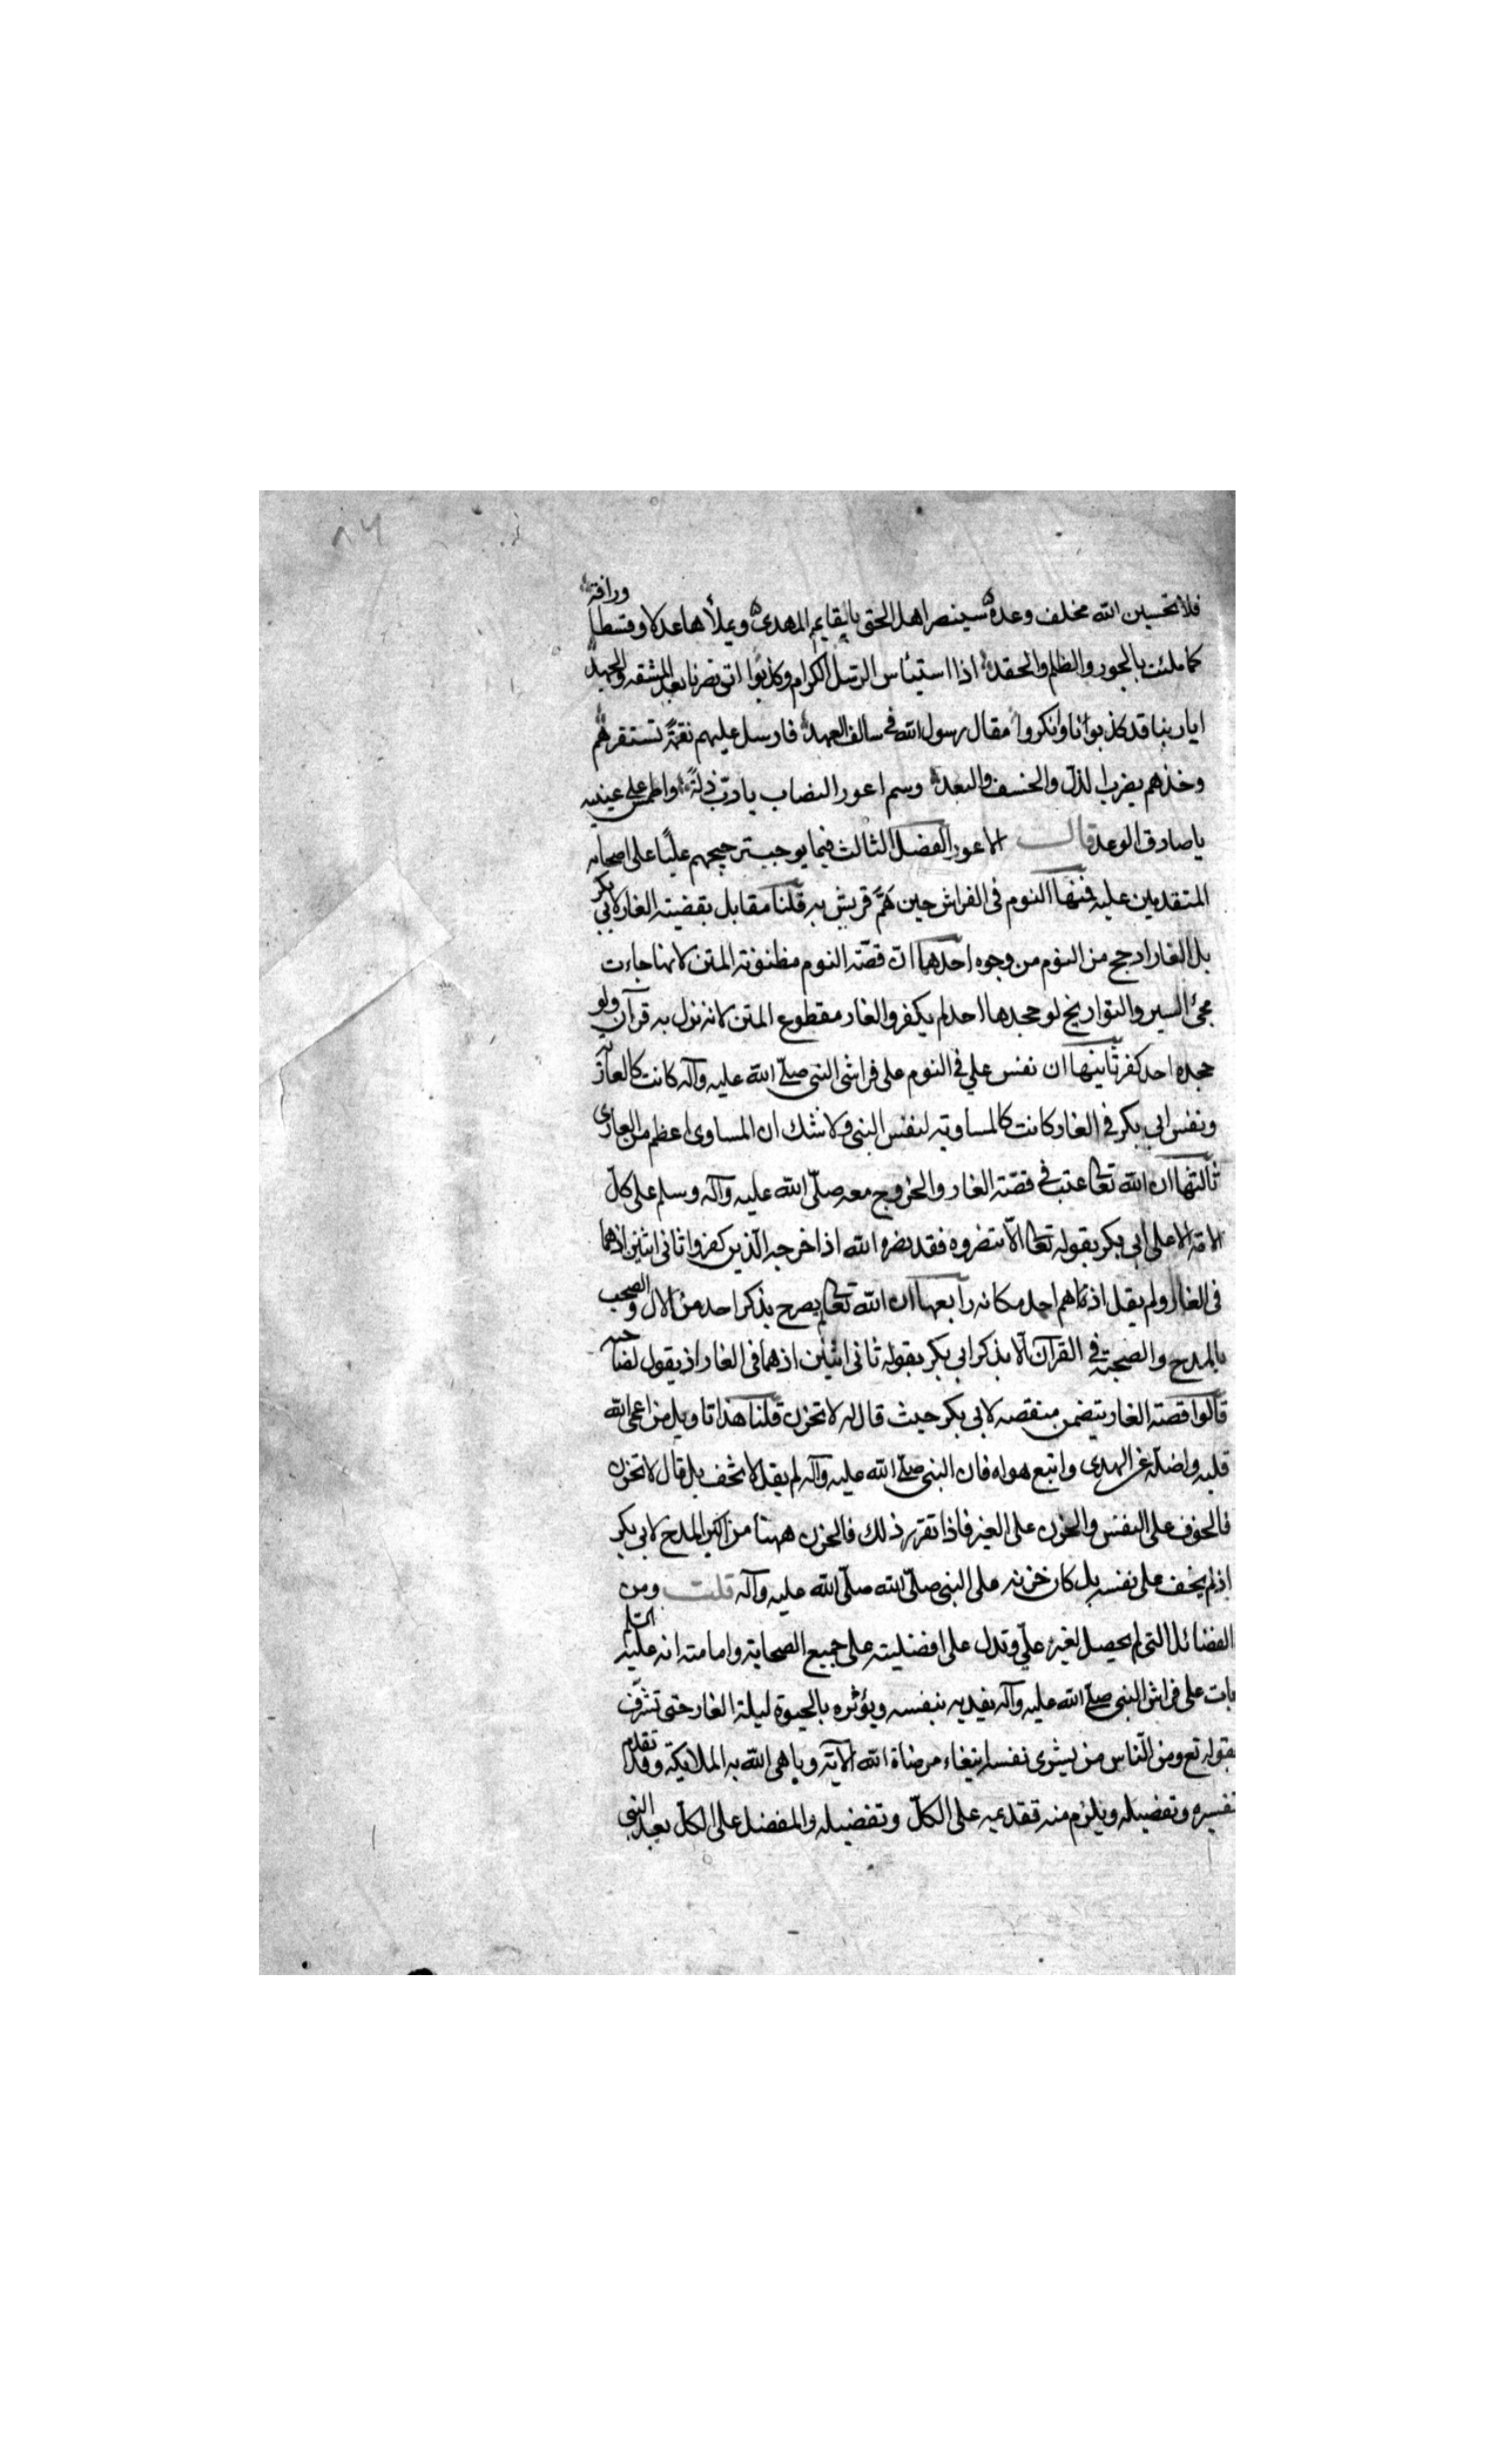 ٨٦
فلا تحسبن الله مخلف وعده سينصر اهل الحق بالقايم المهدى ويملأها عدلا وقسطا ورافة
كما ملئت بالجور والظلم والحقد اذا استيئاس الرسل الكرام وكذبوا اتى نصرنا بعد المشقه والجهد
ايا ربنا قد كذبوانا وانكروا مقال رسول الله فى سالف العهد فارسل عليهم نقمة تستفزهم
وخذهم بضرب الذل والخسف والبعد وسم اعور النصاب يا رب ذلة واطمس على عينيه
يا صادق الوعد قالت الاعور الفصل الثالث فيما يوجب ترجيحهم عليا على اصحابه
المتقدمين عليه فمنها النوم فى الفراش حين هم قريش به قلنا مقابل بقضية الغار لابى بكر
بل الغار ارجح من النوم من وجوه احدهما ان قصة النوم مظنونة المتن لانها جاءت
مجئ السير والتواريخ لو جحدها احد لم يكفر والغار مقطوع المتن لانه نزل به قرآن ولو
جحده احد كفر ثانيها ان نفس علي فى النوم على فراش النبى صلى الله عليه وآله كانت كالعارية
ونفس ابى بكر فى الغار كانت كالمساوية لنفس النبى ولا شك ان المساوى اعظم من العارى
ثالثها ان الله تعالى عتب فى قصة الغار والخروج معه صلى الله عليه وآله وسلم على كل
الامة الا على ابى بكر بقوله تعالى الا تنصروه فقد نصره الله اذ اخرجه الذين كفروا ثانى اثنين اذ هما
فى الغار ولم يقل اذ هم احد مكانه رابعها ان الله تعالى لم يصرح بذكر احد من الآل والصحب
بالمدح والصحبة فى القرآن الا بذكر ابى بكر بقوله ثانى اثنين اذ هما فى الغار اذ يقول لصاحبه
قالوا قصة الغار يتضمن منقصه لابى بكر حيث قال له لا تحزن قلنا هذا تاويل من اعمى الله
قلبه واضله عن الهدى واتبع هواه فان النبى صلى الله عليه وآله لم يقل لا تخف بل قال لا تحزن
فالخوف على النفس والحزن على الغير فاذا تقرر ذلك فالحزن ههنا من اكبر المدح لابى بكر
اذ لم يخف على نفسه بل كان حزنه على النبى صلى الله صلى الله عليه وآله قلت ومن
الفضائل التى لم يحصل لغير علي وتدل على افضليته على جميع الصحابة وامامته انه عليه السلم
بات على فراش النبى صلى الله عليه وآله يفديه بنفسه ويؤثره بالحيوة ليلة الغار حتى تشرف
بقوله تع ومن الناس من يشرى نفسه ابتغاء مرضاة الله الآية وباهى الله به الملايكة وقد تقدم
تفسيره وتفصيله ويلزم منه تقديمه على الكل وتفضيله والمفضل على الكل بعد النبى